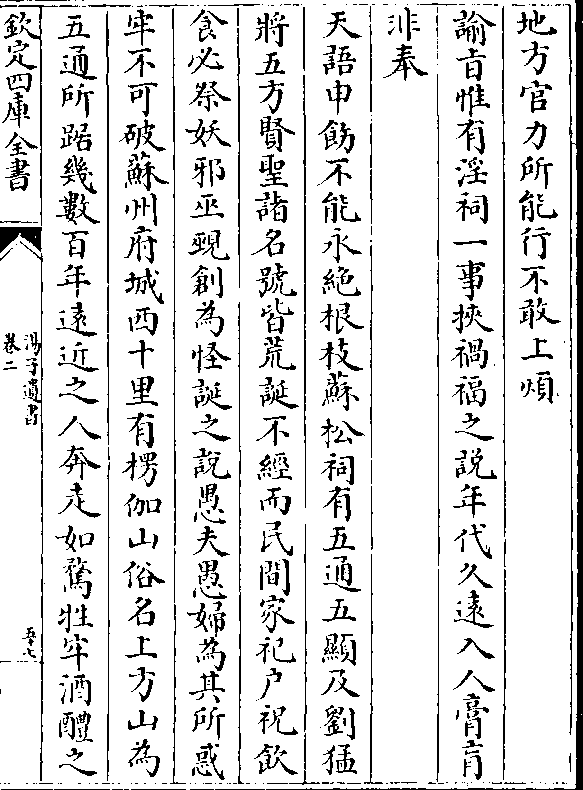 地方官力所能行不敢上煩
諭旨惟有淫祠一事挾禍福之説年代久遠入人膏肓
非奉
天語申飭不能永絶根枝蘇松祠有五通五顯及劉猛
將五方賢聖諸名號皆荒誕不經而民間家祀户祝飲
食必祭妖邪巫覡創為怪誕之說愚夫愚婦為其所惑
牢不可破蘇州府城西十里有楞伽山俗名上方山為
五通所踞幾數百年遠近之人奔走如鶩牲牢酒醴之
欽定四庫全書
湯子遺書
卷二
五十七